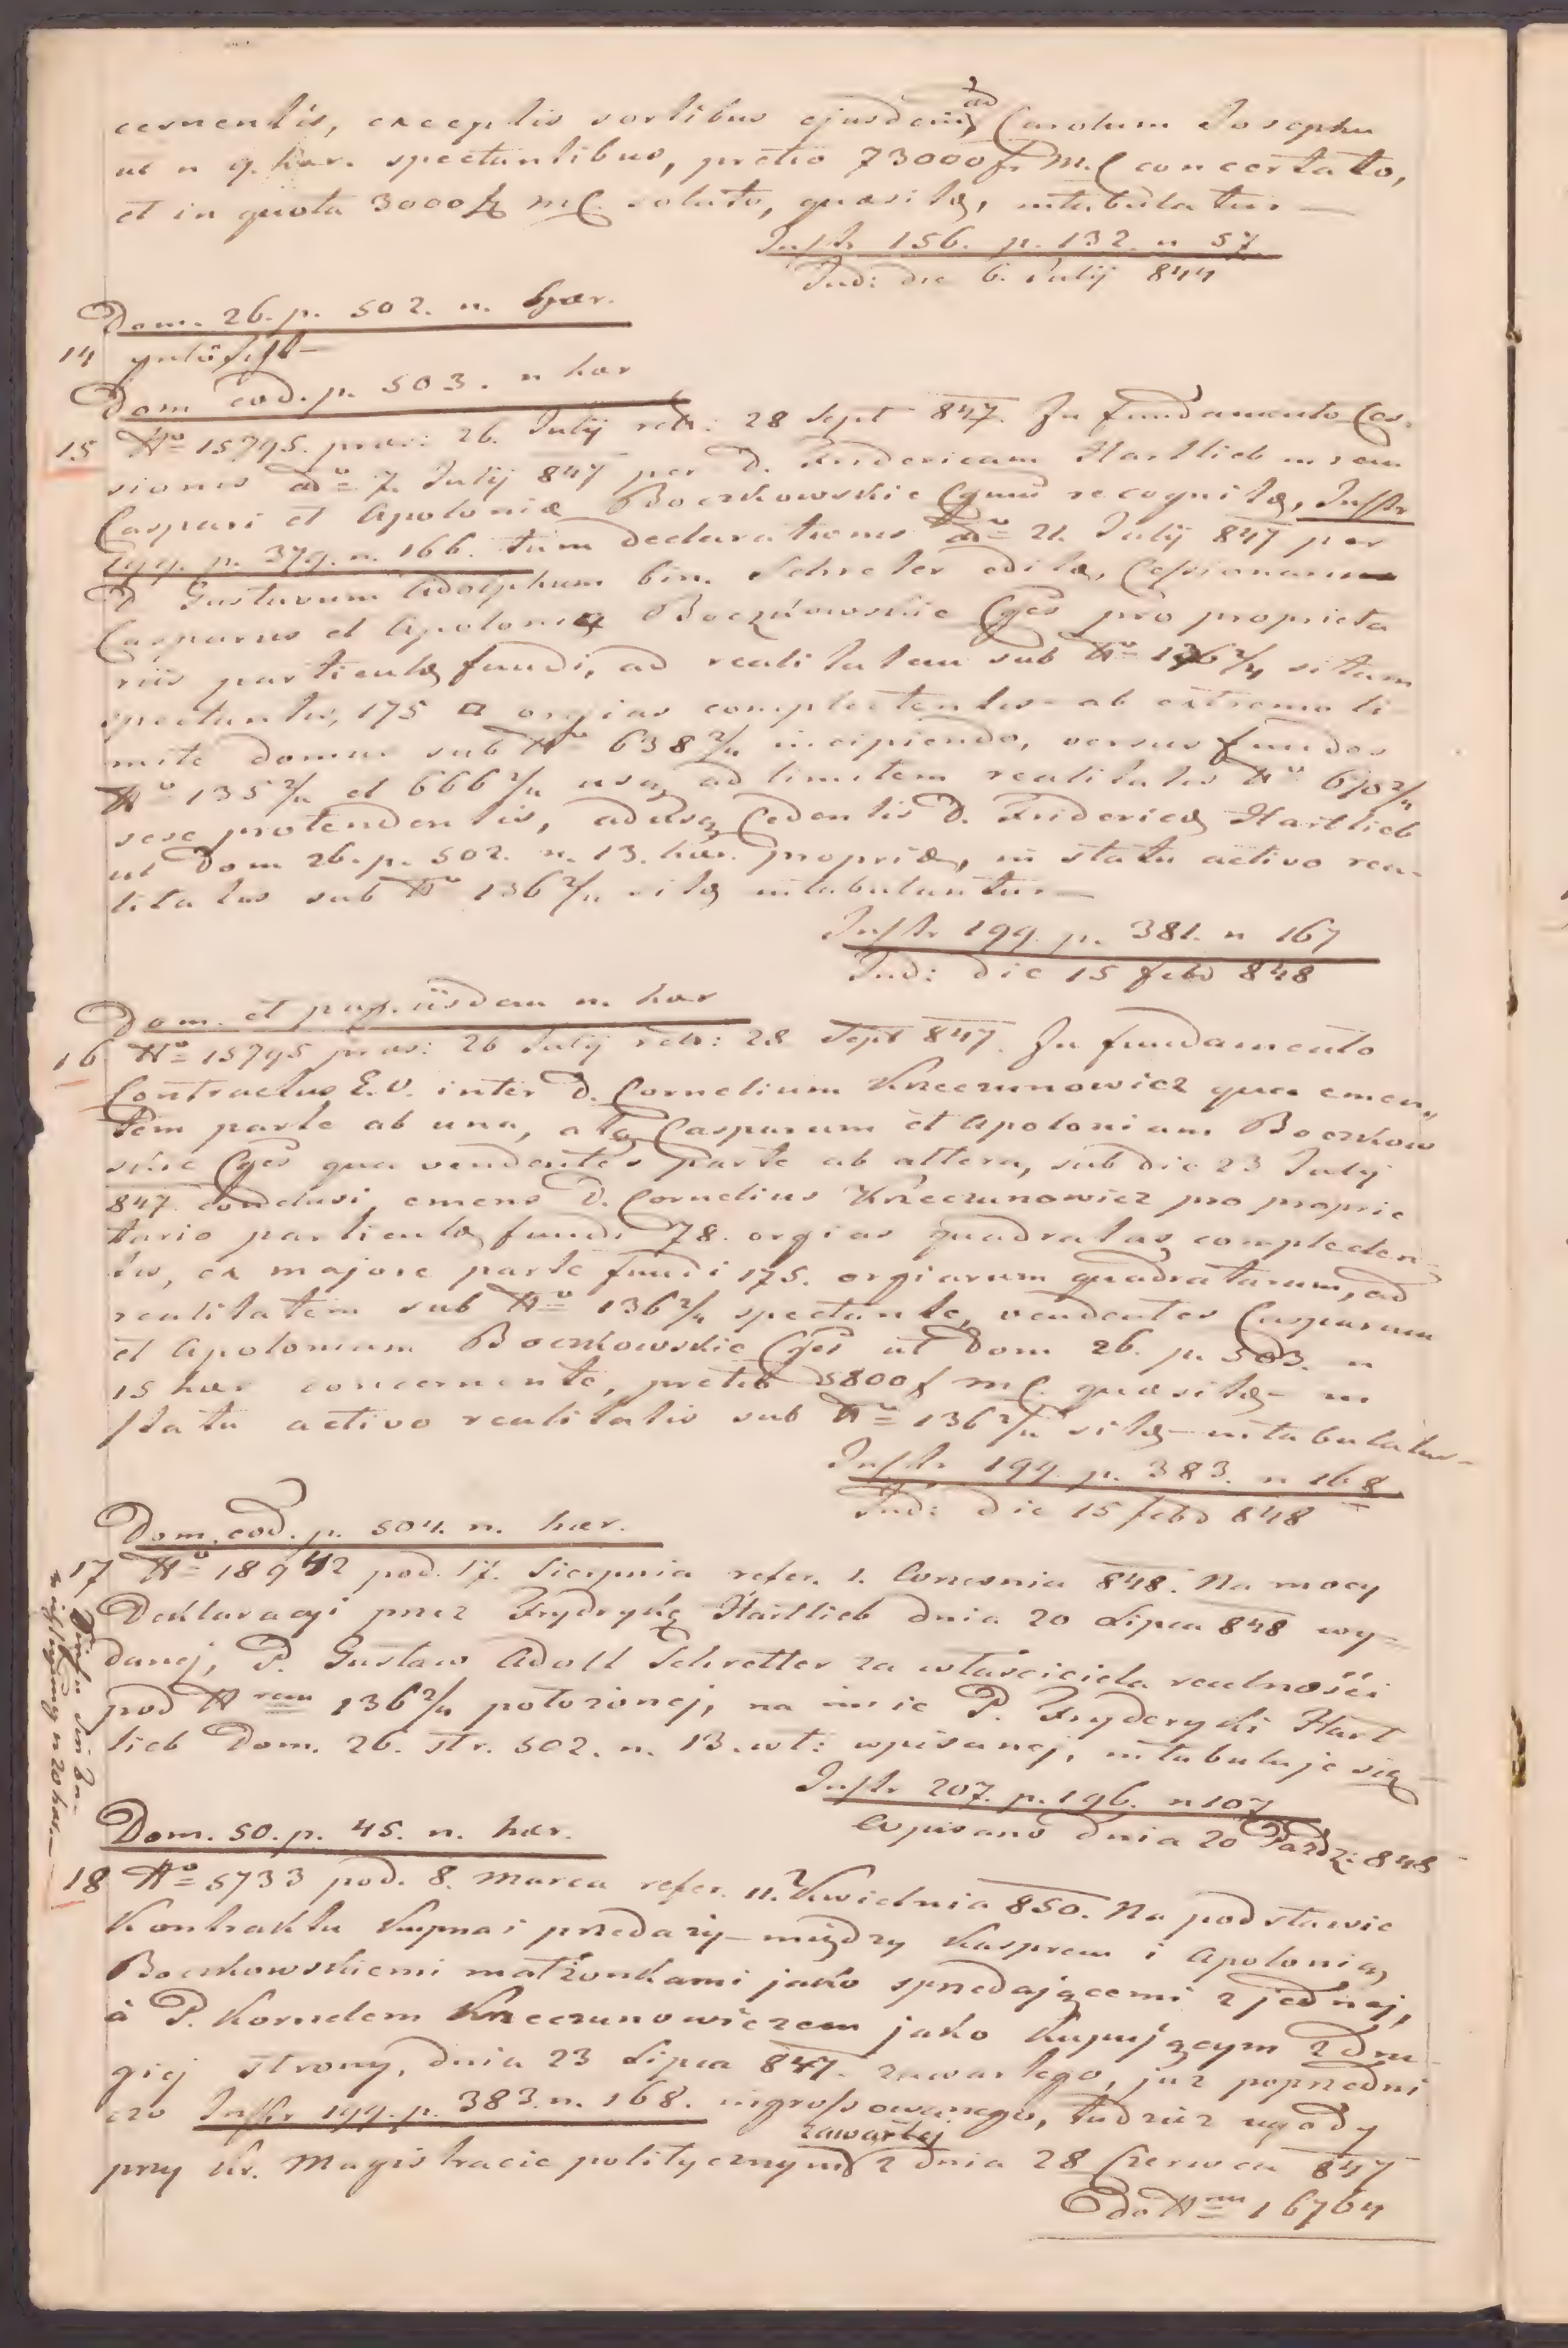 cernentis, exceptis sortibus ejusdem ad Carolum Josephu
ut n 9. hær. spectantibus, pretio 73000 fr M.C concertato,
et in quota 3000 fr MC. soluto, quæsitæ, intabulatur —
Instr 156. p. 132. n 57
Ind: die 6. Julij 844
Dom. 26. p. 502. n. hær.
14 gelöscht —
Dom eod. p. 503. n hær
15 No 15795. præs: 26. Julij retr: 28 Sept 847. In fundamento Ces-
sionis ddo 7. Julij 847 per D. Fridericam Hartlieb in rem
Caspari et Apoloniæ Boczkowskie Cgum recognitæ, Instr
199. p. 379. n. 166. tum declarationis ddo 21. Julij 847 per
D Gustavum Adolphum bin. Schreter editæ, Cessionarii
Casparus et Apolonia Boczkowskie Cges pro proprieta
riis particulæ fundi, ad realitatem sub No 136 2/4 sitam
spectantis, 175 □ orgias complectentis ab extremo li-
mite domus sub No 638 2/4 incipiendo, versus fundos
No 135 2/4 et 666 2/4 usq ad limitem realitatis No 670 2/4
sese protendentis, adusq Cedentis D. Fridericæ Hartlieb
ut Dom 26. p. 502. n. 13. hær. propriæ, in statu activo rea-
litatis sub No 136 2/4 sitæ intabulantur —
Instr 199. p. 381. n 167
Ind: die 15 febr 848
Dom. et pag. iisdem n. hær
16 No 15795 præs: 26 Julij retr: 28 Sept 847. In fundamento
Contractus E.V. inter D. Cornelium Krzeczunowicz qua emen„
tem parte ab una, atq Casparum et Apoloniam Boczkow
skie Cges qua vendentes parte ab altera, sub die 23 Julij
847 conclusi, emens D. Cornelius Krzeczunowicz pro proprie
tario particulæ fundi 78. orgias quadratas complecten-
tis, ex majore parte fundi 175. orgiarum quadratarum, ad
realitatem sub No 136 2/4 spectante, vendentes Casparum
et Apoloniam Boczkowskie Cges ut Dom 26. p. 503. n
15 hær concernente, pretio 5800 f MC. quæsitæ — in
statu activo realitatis sub No 136 2/4 sitæ — intabulatur —
Instr 199. p. 383. n 168
Ind: die 15 febr 848
Dom. eod. p. 504. n. hær.
17 No 18942 pod. 17. Sierpnia refer. 1. Września 848. Na mocy
Deklaracyi przez Frydrykę Hartlieb dnia 20 Lipca 848 wy-
danej, P. Gustaw Adolf Schretter za właściciela realności
pod Nrem 136 2/4 położonej, na imie P. Fryderyki Hart
lieb Dom. 26. str. 502. n. 13. wł: wpisanej, intabuluje się —
Instr 207. p. 196. n 107
Wpisano dnia 20 Paźdz: 848
Dom. 50. p. 45. n. hær.
18 No 5733 pod. 8. Marca refer. 11. Kwietnia 850. Na podstawie
Kontraktu Kupna i przedaży — między Kasprem i Apolonią
Boczkowskiemi małżonkami jako sprzedającemi z jednej,
à P. Kornelem Krzeczunowiczem jako Kupującym z dru-
giej strony, dnia 23 Lipca 847. zawartego, już poprzedni
czo Instr 199. p. 383. n. 168. ingrossowanego, tudzież ugody
przy kr. Magistracie politycznym zawartej z dnia 28 Czerwca 847
Do Nru 16764